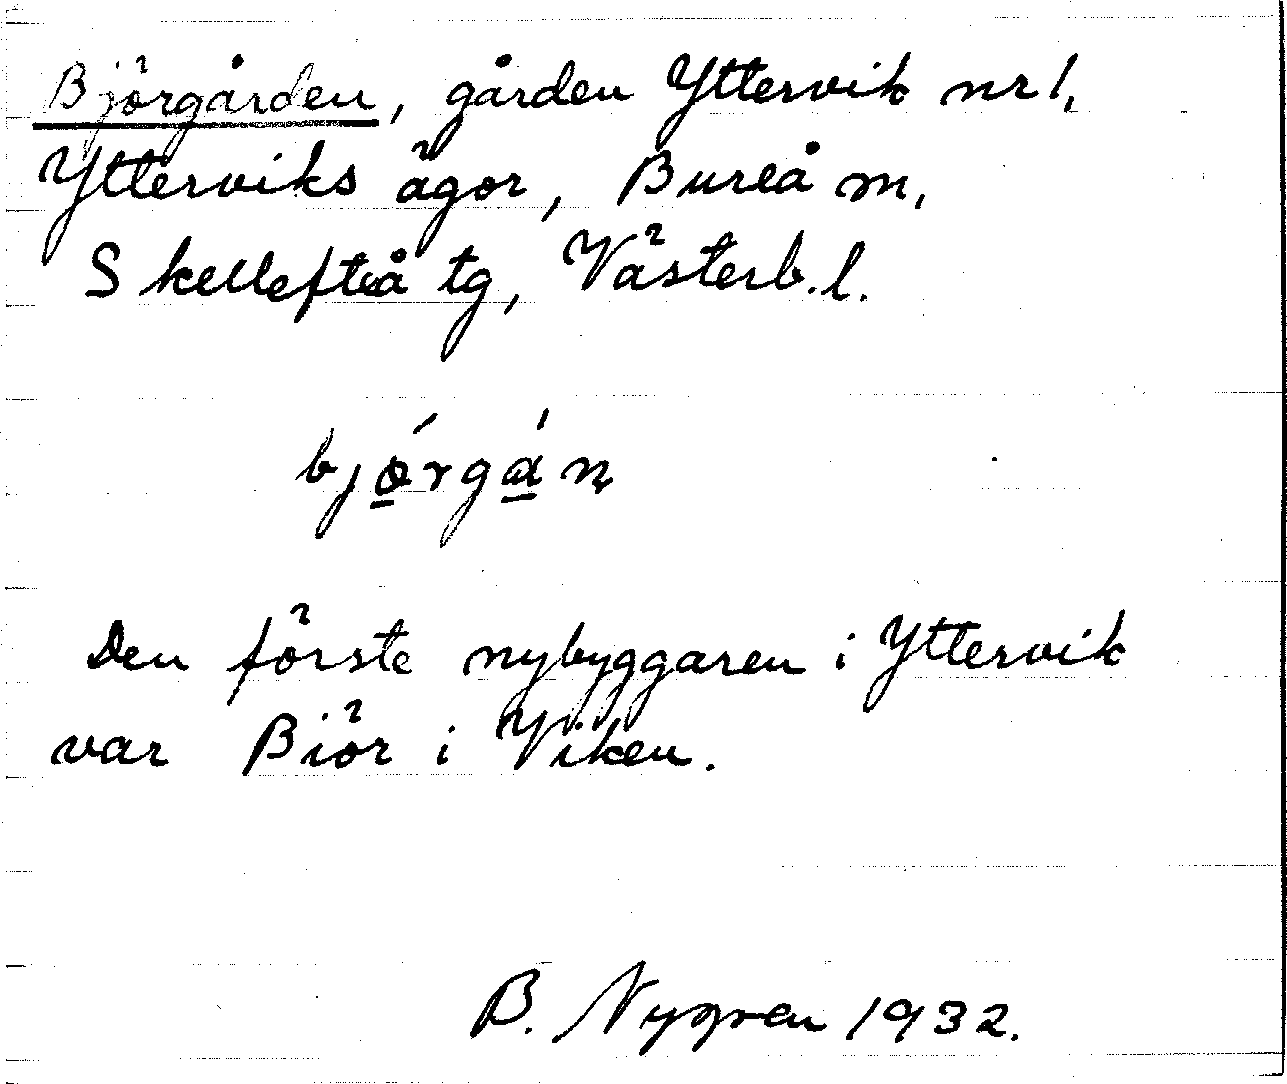 Björgården, gården Yttervik nr 1,
Ytterviks ägor, Bureå m,
Skellefteå tg, Västerb. l.
bjǿ̱rgá̱ṇ
Den förste nybyggaren i Yttervik
var Biör i Viken.
B. Nygren 1932.